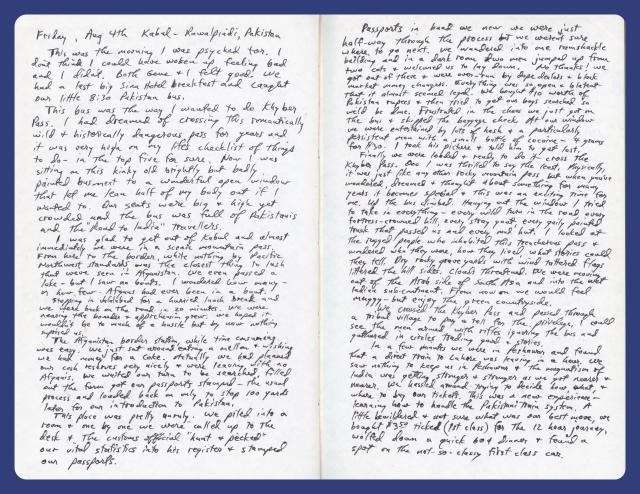 Friday, Aug 4th Kabul - Rawalpindi, Pakistan
This was the morning I was psyched for. I
don't think I could have woken up feeling bad
and I didn't. Both Gene & I felt good. We
had a last big Sina Hotel breakfast and caught
our little 8:30 Pakistan bus.
This bus was the way I wanted to do Khyber
Pass. I had dreamed of crossing this romantically
wild & historically dangerous pass for years and
it was very high on my life's checklist of things
to do - in the top five for sure. Now I was
sitting on this kinky old brightly but badly
painted bus next to a wonderful open window
that let me lean half of my body out if I
wanted to. Our seats were big & high yet
crowded and the bus was full of Pakistanis
and the "Road to India" travellers.
I was glad to get out of Kabul and almost
immediately we were in a scenic mountain pass.
From here to the border, while nothing by Pacific
Northwest standards was the closest thing to lush
that we've seen in Afganistan. We even passed a
lake - but I saw no boats. I wondered how many -
or how few - Afgans had ever been in a boat.
Stopping in Jalalabad for a hurried lunch break and
we were back on the road in 20 minutes. We were
nearing the border & apprehension grew. We hoped it
wouldn't be to much of a hassle but by now nothing
suprised us.
The Afganistan border station, while time consuming
was easy. We just sat around eating a mellon & wishing
we had money for a Coke. Actually we had planned
our cash reserves very nicely & were leaving with no
Afganis. We waited our turn to be searched, filled
out the form got our passports stamped - the usual
process and loaded back in only to stop 100 yards
later for our introduction to Pakistan.
This place was pretty quaint. We piled into a
room & one by one we were called up to the
desk & the customs official "hunt & pecked"
our vital statistics into his register & stamped
our passports.
Passports in hand we now we were just
half-way through the process but we weren't sure
where to go next. We wandered into one ramshackle
building and in a dark room two men jumped up from
two cots & welcomed us to lay down. No thanks! We
got out of there & were over-run by dope dealers & black
market money changers. Everything was so open & blatent
that it almost seemed legal. We bought $10 worth of
Pakistan rupees & then tried to get our bags searched so
we'd be done. Frustrated in the chaos we just got on
the bus & skipped the baggage check. At our window
we were entertained by lots of hash & a particularly
persistent man with a small bottle of cocaine - 4 grams
for $30. I took his picture & told him to get lost.
Finally we were loaded & ready to do it - cross the
Khyber Pass. Now I was thrilled to say the least. Physically,
it was just like any other rocky mountain pass but when you've
wondered, dreamed & thought about something for many
years it becomes special & this was an exciting time for
me. Up the bus climbed. Hanging out the window I tried
to take in everything - every wild turn in the road every
fortress-crowned hill, every stray goat, every gaily painted
truck that passed us and every mud hut. I looked at
the rugged people who inhabited this treacherous pass &
wondered who they were, how they lived, what stories could
they tell. Dry rocky graveyards with wind tattered flags
littered the hill sides. Clouds threatened. We were moving
out of the Arab side of South Asia and into the wet
Indian sub-continent. From now on we would feel
muggy - but enjoy the green countryside.
We crossed the Khyber Pass and passed through
a tribal village to pay a toll for the privilege, I could
see the men armed with rifles ignoring the bus and
gathered in circles trading goods & stories.
In a few minutes we were in Peshawar and found
that a direct train to Lahore was leaving in an hour. We
saw nothing to keep us in Peshawar & the magnatism of
India was getting stronger & stronger as we got nearer &
nearer. We hassled around trying to decide how, what &
where to buy our tickets. This was a new experience -
learning how to handle the Pakistan train system. A
little bewildered & not sure what was our best move, we
bought $3.50 ticket (1st class) for the 12 hour journey,
wolfed down a quick 60¢ dinner & found a
spot on the not-so-classy first class car.